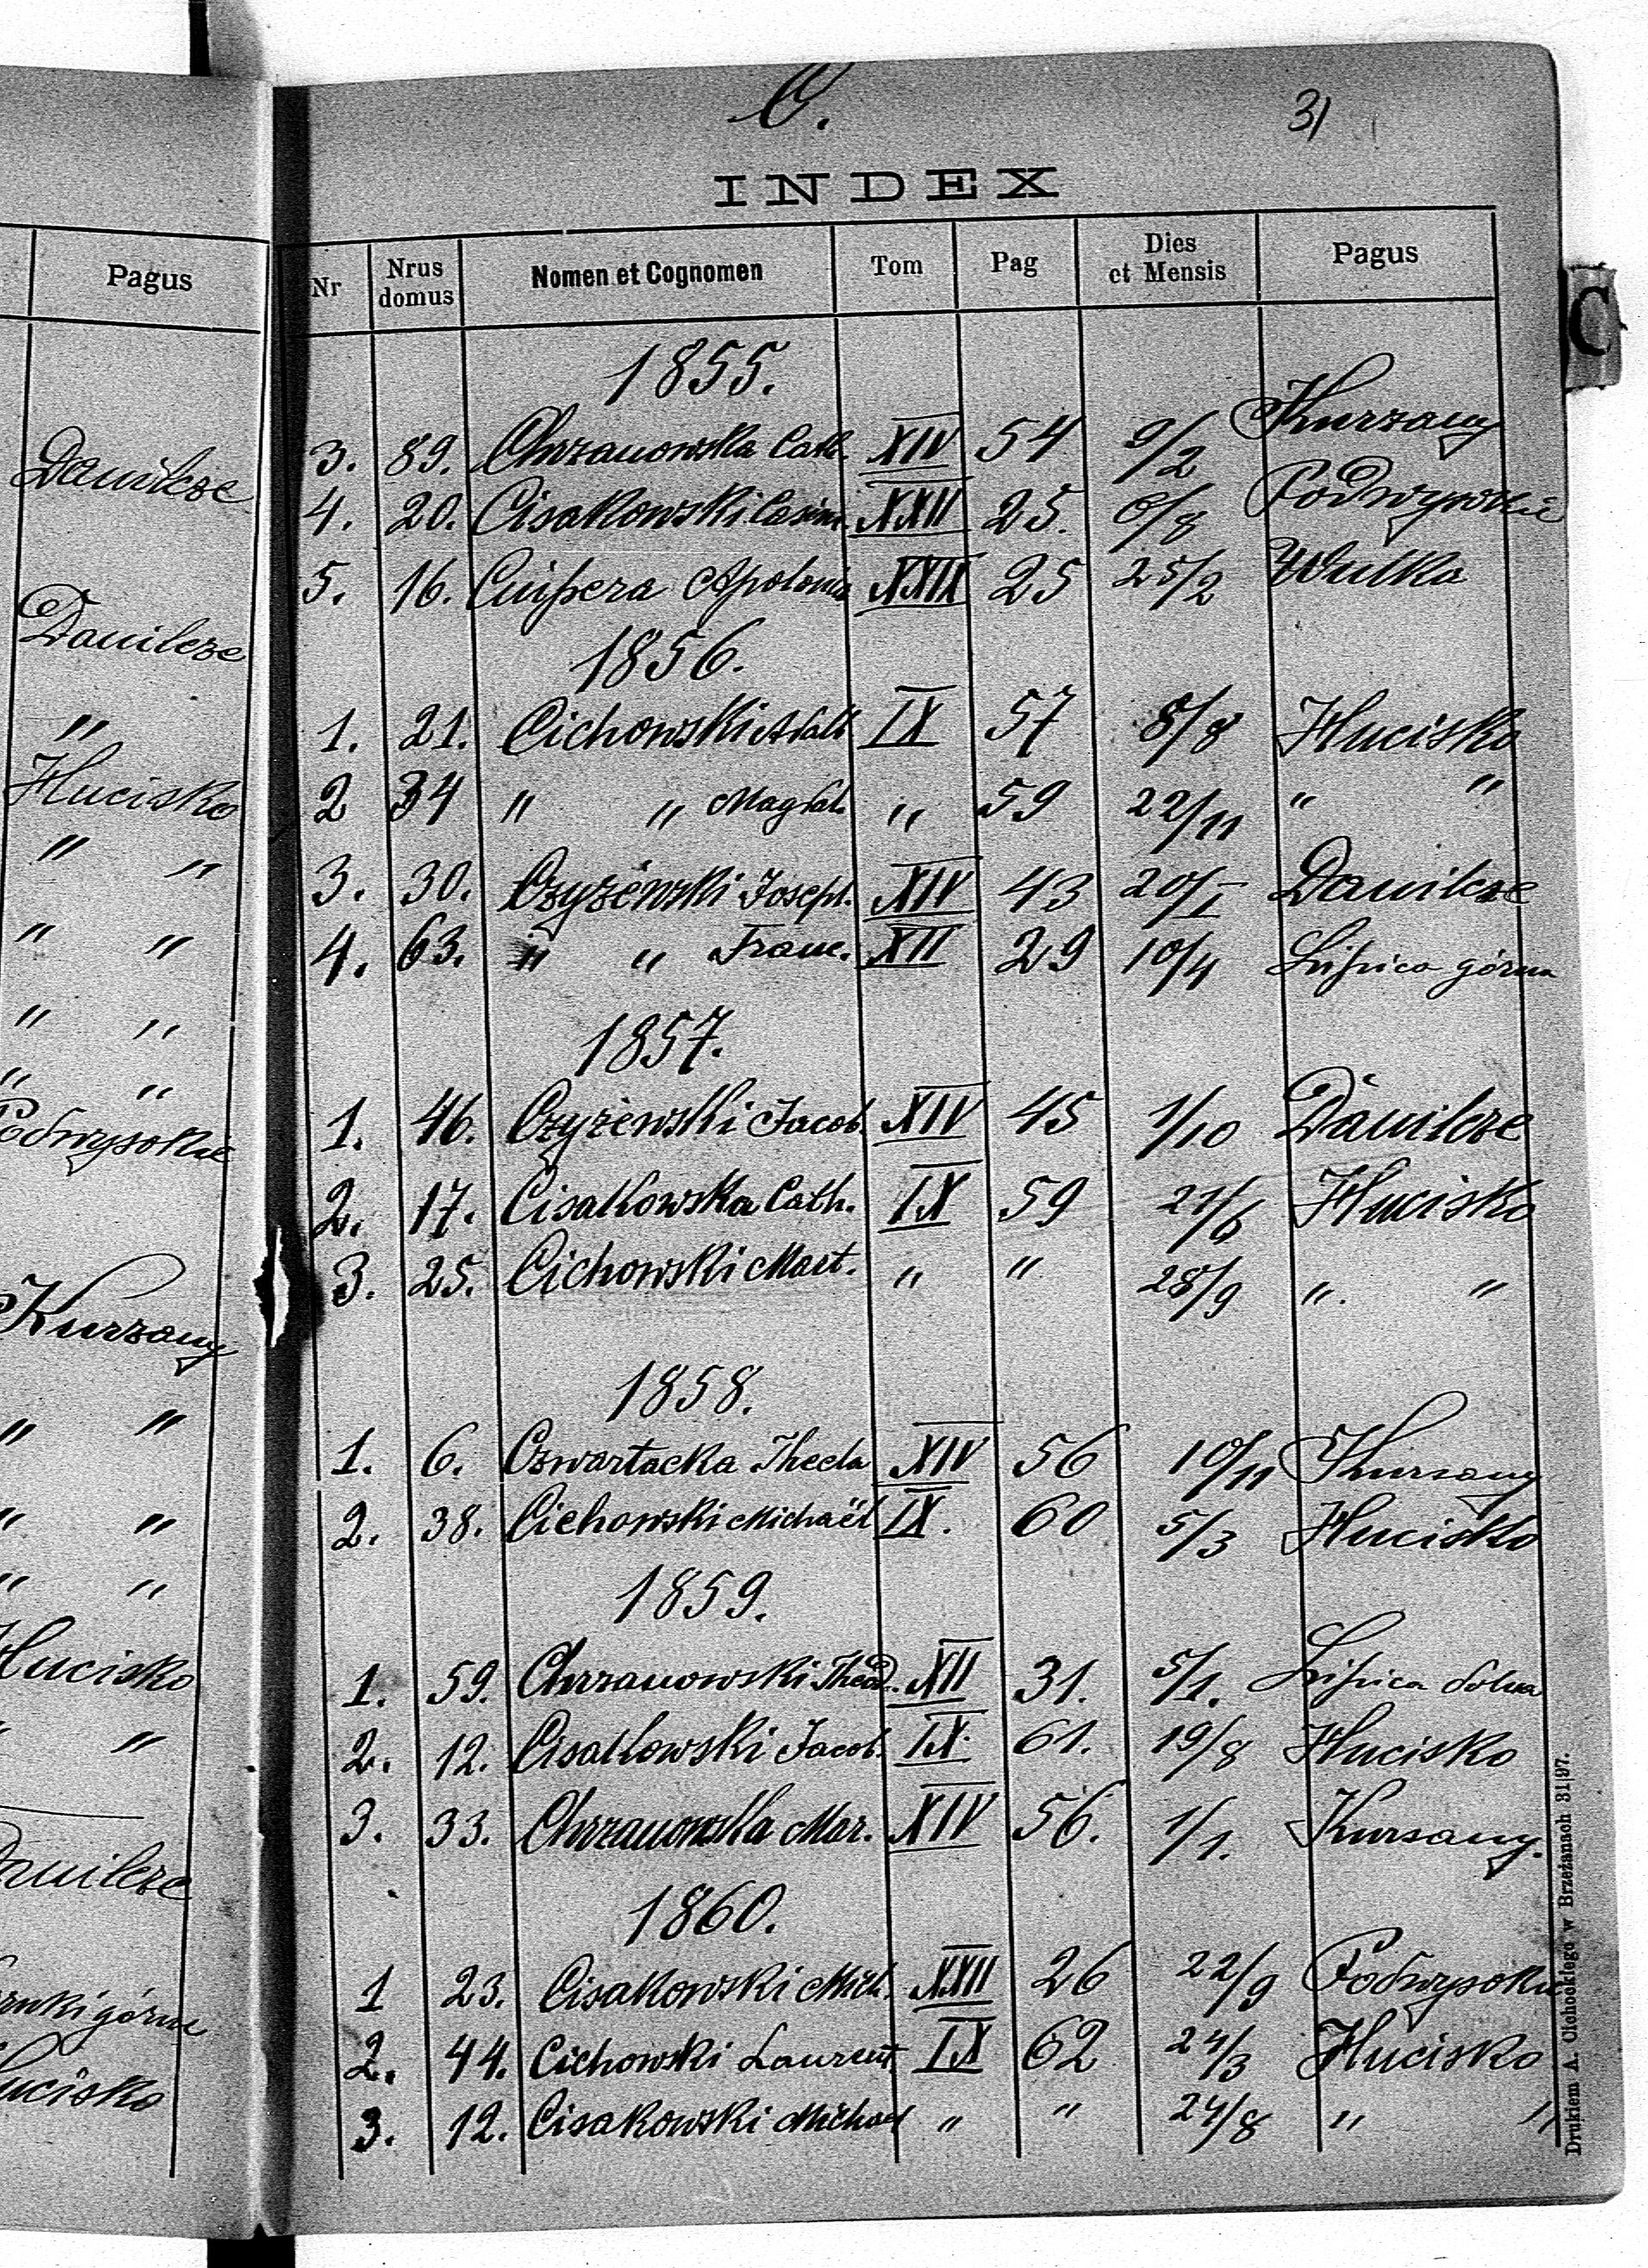 Pagus
Danilcze
Danilcze
"
Hucisko
" "
" "
" "
" "
Podwysokie
Kurzany
" "
" "
" "
Hucisko
" "
Danilcze
górne
Hucisko
C.
31
INDEX
Nr Nrus domus Nomen et Cognomen Tom Pag Dies et Mensis Pagus
C
1855.
3. 89. Chrzanowska Cath. XIV 54 9/2 Kurzany
4. 20. Cisakowski Casim. XXII 25. 6/8 Podwysokie
5. 16. Ciupera Apolonia XXII 25 25/2 Wulka
1856.
1. 21. Cichowski Adalb IX 57 8/8 Hucisko
2 34 " " Magdal. " 59 22/11 " "
3. 30. Czyżewski Joseph. XIV 43 20/I Danilcze
4. 63. " " Franc. XII 29 10/4 Lipica górna
1857.
1. 46. Czyżewski Jacob. XIV 45 1/10 Danilcze
2. 17. Cisakowska Cath. IX 59 21/6 Hucisko
3. 25. Cichowski Mart. " " 28/9 " "
1858.
1. 6. Czwartacka Thecla XIV 56 10/11 Kurzany
2. 38. Cichowski Michaël IX. 60 5/3 Hucisko
1859.
1. 59. Chrzanowski Theod. XII 31. 5/1. Lipica dolna
2. 12. Cisakowski Jacob. IX. 61. 19/8 Hucisko
3. 33. Chrzanowska Mar. XIV 56. 1/1. Kurzany.
1860.
1 23. Cisakowski Mich. XXII 26 22/9 Podwysokie
2. 44. Cichowski Laurent. IX 62 24/3 Hucisko
3. 12. Cisakowski Michael " " 24/8 " "
Drukiem A. Cichockiego w Brzeżanach 31|97.